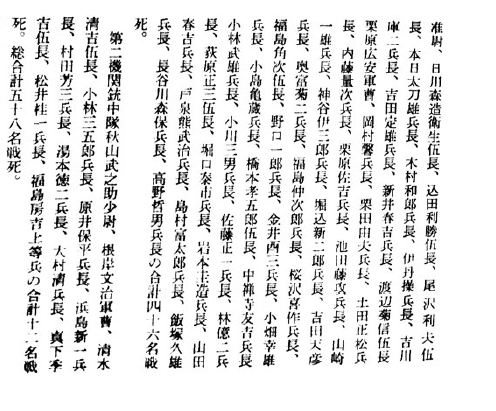 准尉、日川森造衛生伍長、込田利勝伍長、尾沢利夫伍
長、本日太刀雄兵長、木村和郎兵長、伊丹操兵長、吉川
庫二兵長、吉田定雄兵長、新井春吉兵長、渡辺菊信伍長
栗原広安軍曹、岡村馨兵長、栗田由夫兵長、土田正松兵
長、内藤量次兵長、栗原佐吉兵長、池田藤攻兵長、山崎
一雄兵長、神谷伊三郎兵長、堀込新二郎兵長、吉田天彦
兵長、奥富菊二兵長、福島仲次郎兵長、桜沢喜作兵長、
福島角次伍長、野口一郎兵長、金井酉三兵長、小畑幸雄
兵長、小島亀蔵兵長、橋本孝五郎伍長、中禅寺友吉兵長
小林武雄兵長、小川三男兵長、佐藤正一兵長、林億二兵
長、荻原正三伍長、堀口泰市兵長、岩本圭造兵長、山田
春吉兵長、戸泉熊武治兵長、島村富太郎兵長、飯塚久雄
兵長、長谷川森保兵長、高野哲男兵長の合計四十六名戦
死。
第二機関銃中隊秋山武之助少尉、根岸文治軍曹、清水
清吉伍長、小林三五郎兵長、原井保平兵長、浜島新一兵
長、村田芳三兵長、湯本徳二兵長、大村清兵長、真下季
吉伍長、松井桂一兵長、福島房吉上等兵の合計十二名戦
死。総合計五十八名戦死。